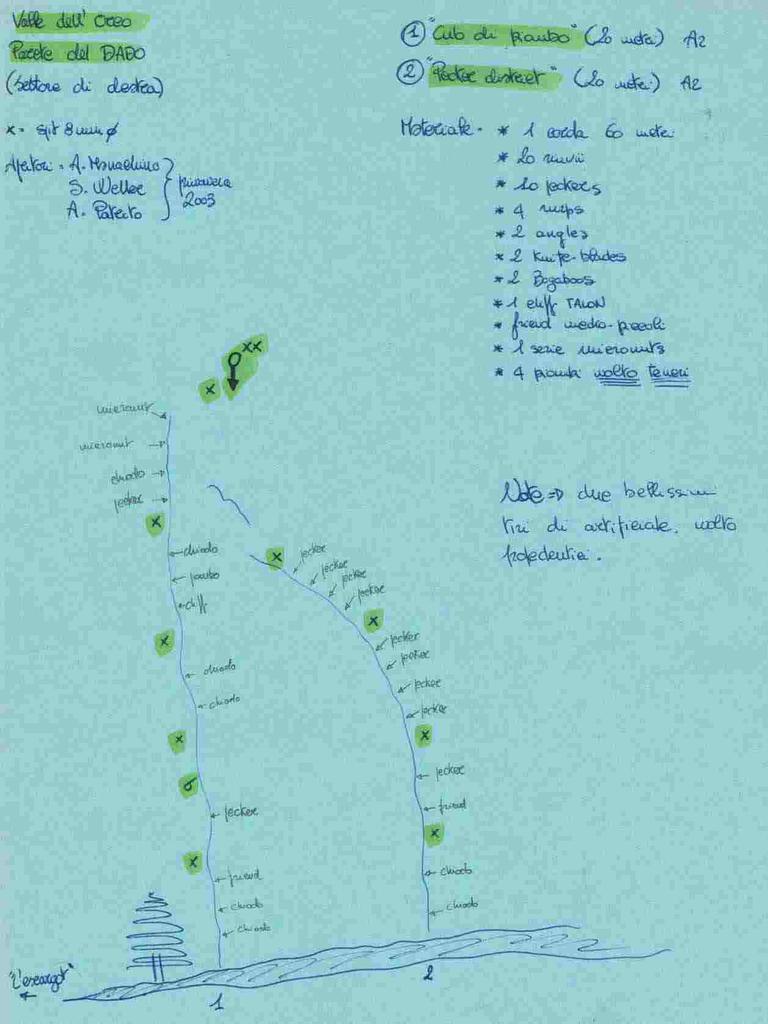 Valle dell' Orco
Parete del DADO
(settore di destra)
x = spit 8 mm ø
Apritori = A. Monachino
S. Weller
A. Paterto
primavera
2003
① "Culo di piombo" (20 metri) A2
② "Pecker district" (20 metri) A2
Materiale - * 1 corda 60 metri
* 20 rinvii
* 10 peckers
* 4 rurps
* 2 angles
* 2 Knife-blades
* 2 Bogaboos
* 1 cliff TALON
* friend medio-piccoli
* 1 serie micronuts
* 4 piombi molto teneri
Note => due bellissimi
tiri di artificiale, molto
propedeutici.
xx
x
micronut
micronut
chiodo
pecker
x
chiodo
piombo
cliff
x
chiodo
chiodo
x
pecker
x
friend
chiodo
chiodo
x
pecker
pecker
pecker
pecker
x
pecker
pecker
pecker
pecker
x
pecker
friend
x
chiodo
chiodo
"L'escargot"
1
2